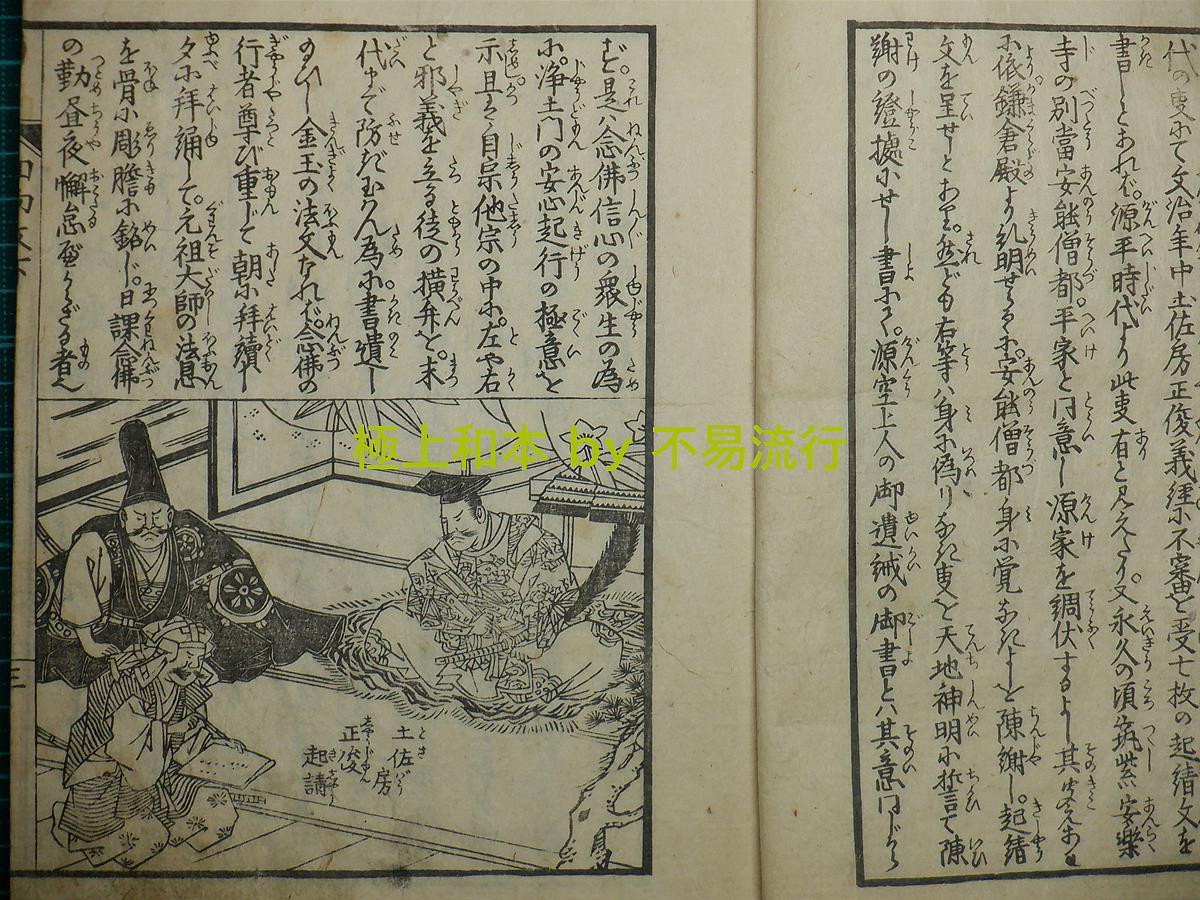 代の事にて文治年中土佐房正俊義経に不審を受七枚の起請文を
書しとあれば。源平時代より此事有と見えたり。又永久の頃筑紫安楽
寺の別當安能僧都。平家と同意し源家を調伏するよし其
に依鎌倉殿より糺明せるゝに。安能僧都身に覚なきよしを陳謝し。起請
文を呈せとあり。然ども右等ハ身に偽りなき事を天地神明に誓て陳
謝の證拠にせし書にて。源空上人の御遺誡の御書とハ其意同じから
ず。是ハ念佛信心の衆生の為
に。浄土門の安心起行の極意を
示且ハ自宗他宗の中に。左や右
と邪義を立る徒の横弁を。末
代まで防ぎ玉はん為に書遺し
のひし金玉の法文なれば。念佛の
行者尊び重じて朝に拝讀し
夕に拝誦して。元祖大師の法息
を骨に彫膽に銘じ。日課念佛
の勤昼夜懈怠べからざる者也
土佐房
正俊
起請
三
極上和本 by 不易流行